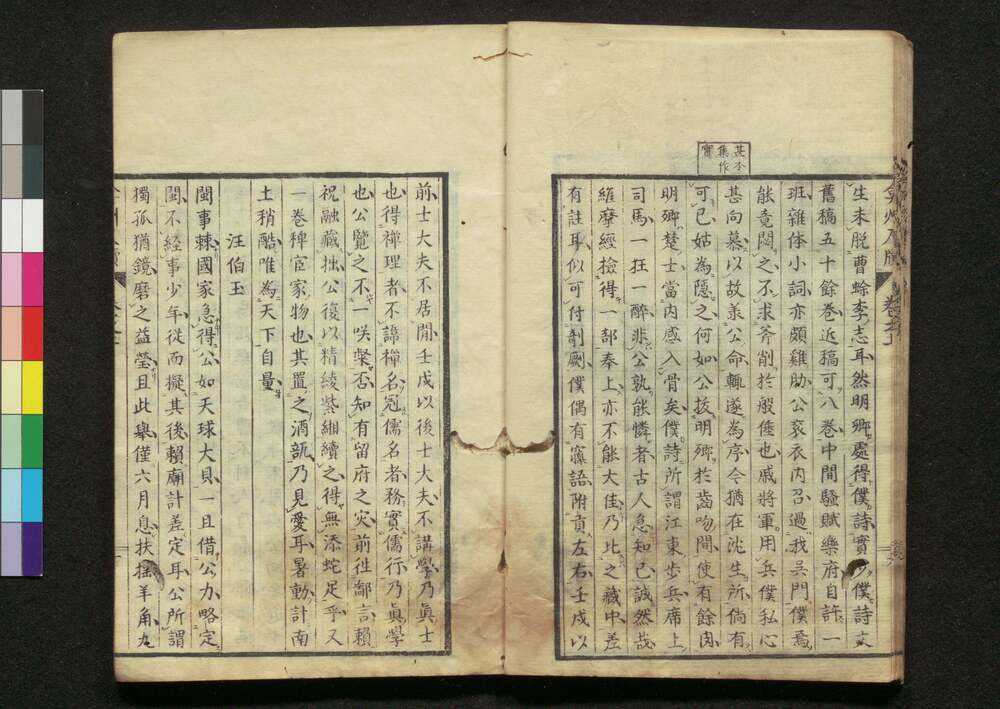 某本
集作
實
生未脫曹蜍李志耳然明卿處得僕詩實少僕詩文
舊稿五十餘卷近稿可八卷中間騷賦樂府自許一
班雜体小詞亦頗雞肋公衮衣内召過我吳門僕焉
能竟閟之不求斧削於般倕也戚將軍用兵僕私心
甚向慕以故承公命輒遂為序今猶在沈生所倘有
可已姑為隱之何如公拔明卿於齒吻間使有餘肉
明卿楚士當内感入骨矣僕詩所謂江東步兵席上
司馬一狂一醉非公孰能憐者古人急知己誠然哉
維摩經撿得一部奉上亦不能大佳乃比之藏中差
有註耳似可付剞劂僕偶有寐語附貢左右壬戌以
前士大夫不居閒壬戌以後士大夫不講學乃眞士
也得禅理者不諦禅名冠儒名者務實儒行乃眞學
也公覽之不一咲棄否知有留府之灾前徃鄙言賴
祝融藏拙公復以精綾紫緗續之得無添蛇足乎又
一卷稗官家物也其置之酒瓿乃見愛耳暑動計南
土稍酷唯為天下自量
汪伯玉
閩事棘國家急得公如天球大貝一旦借公力略定
閩不経事少年從而擬其後賴廟計差定耳公所謂
獨孤猶鏡磨之益瑩且此舉僅六月息扶揺羊角九